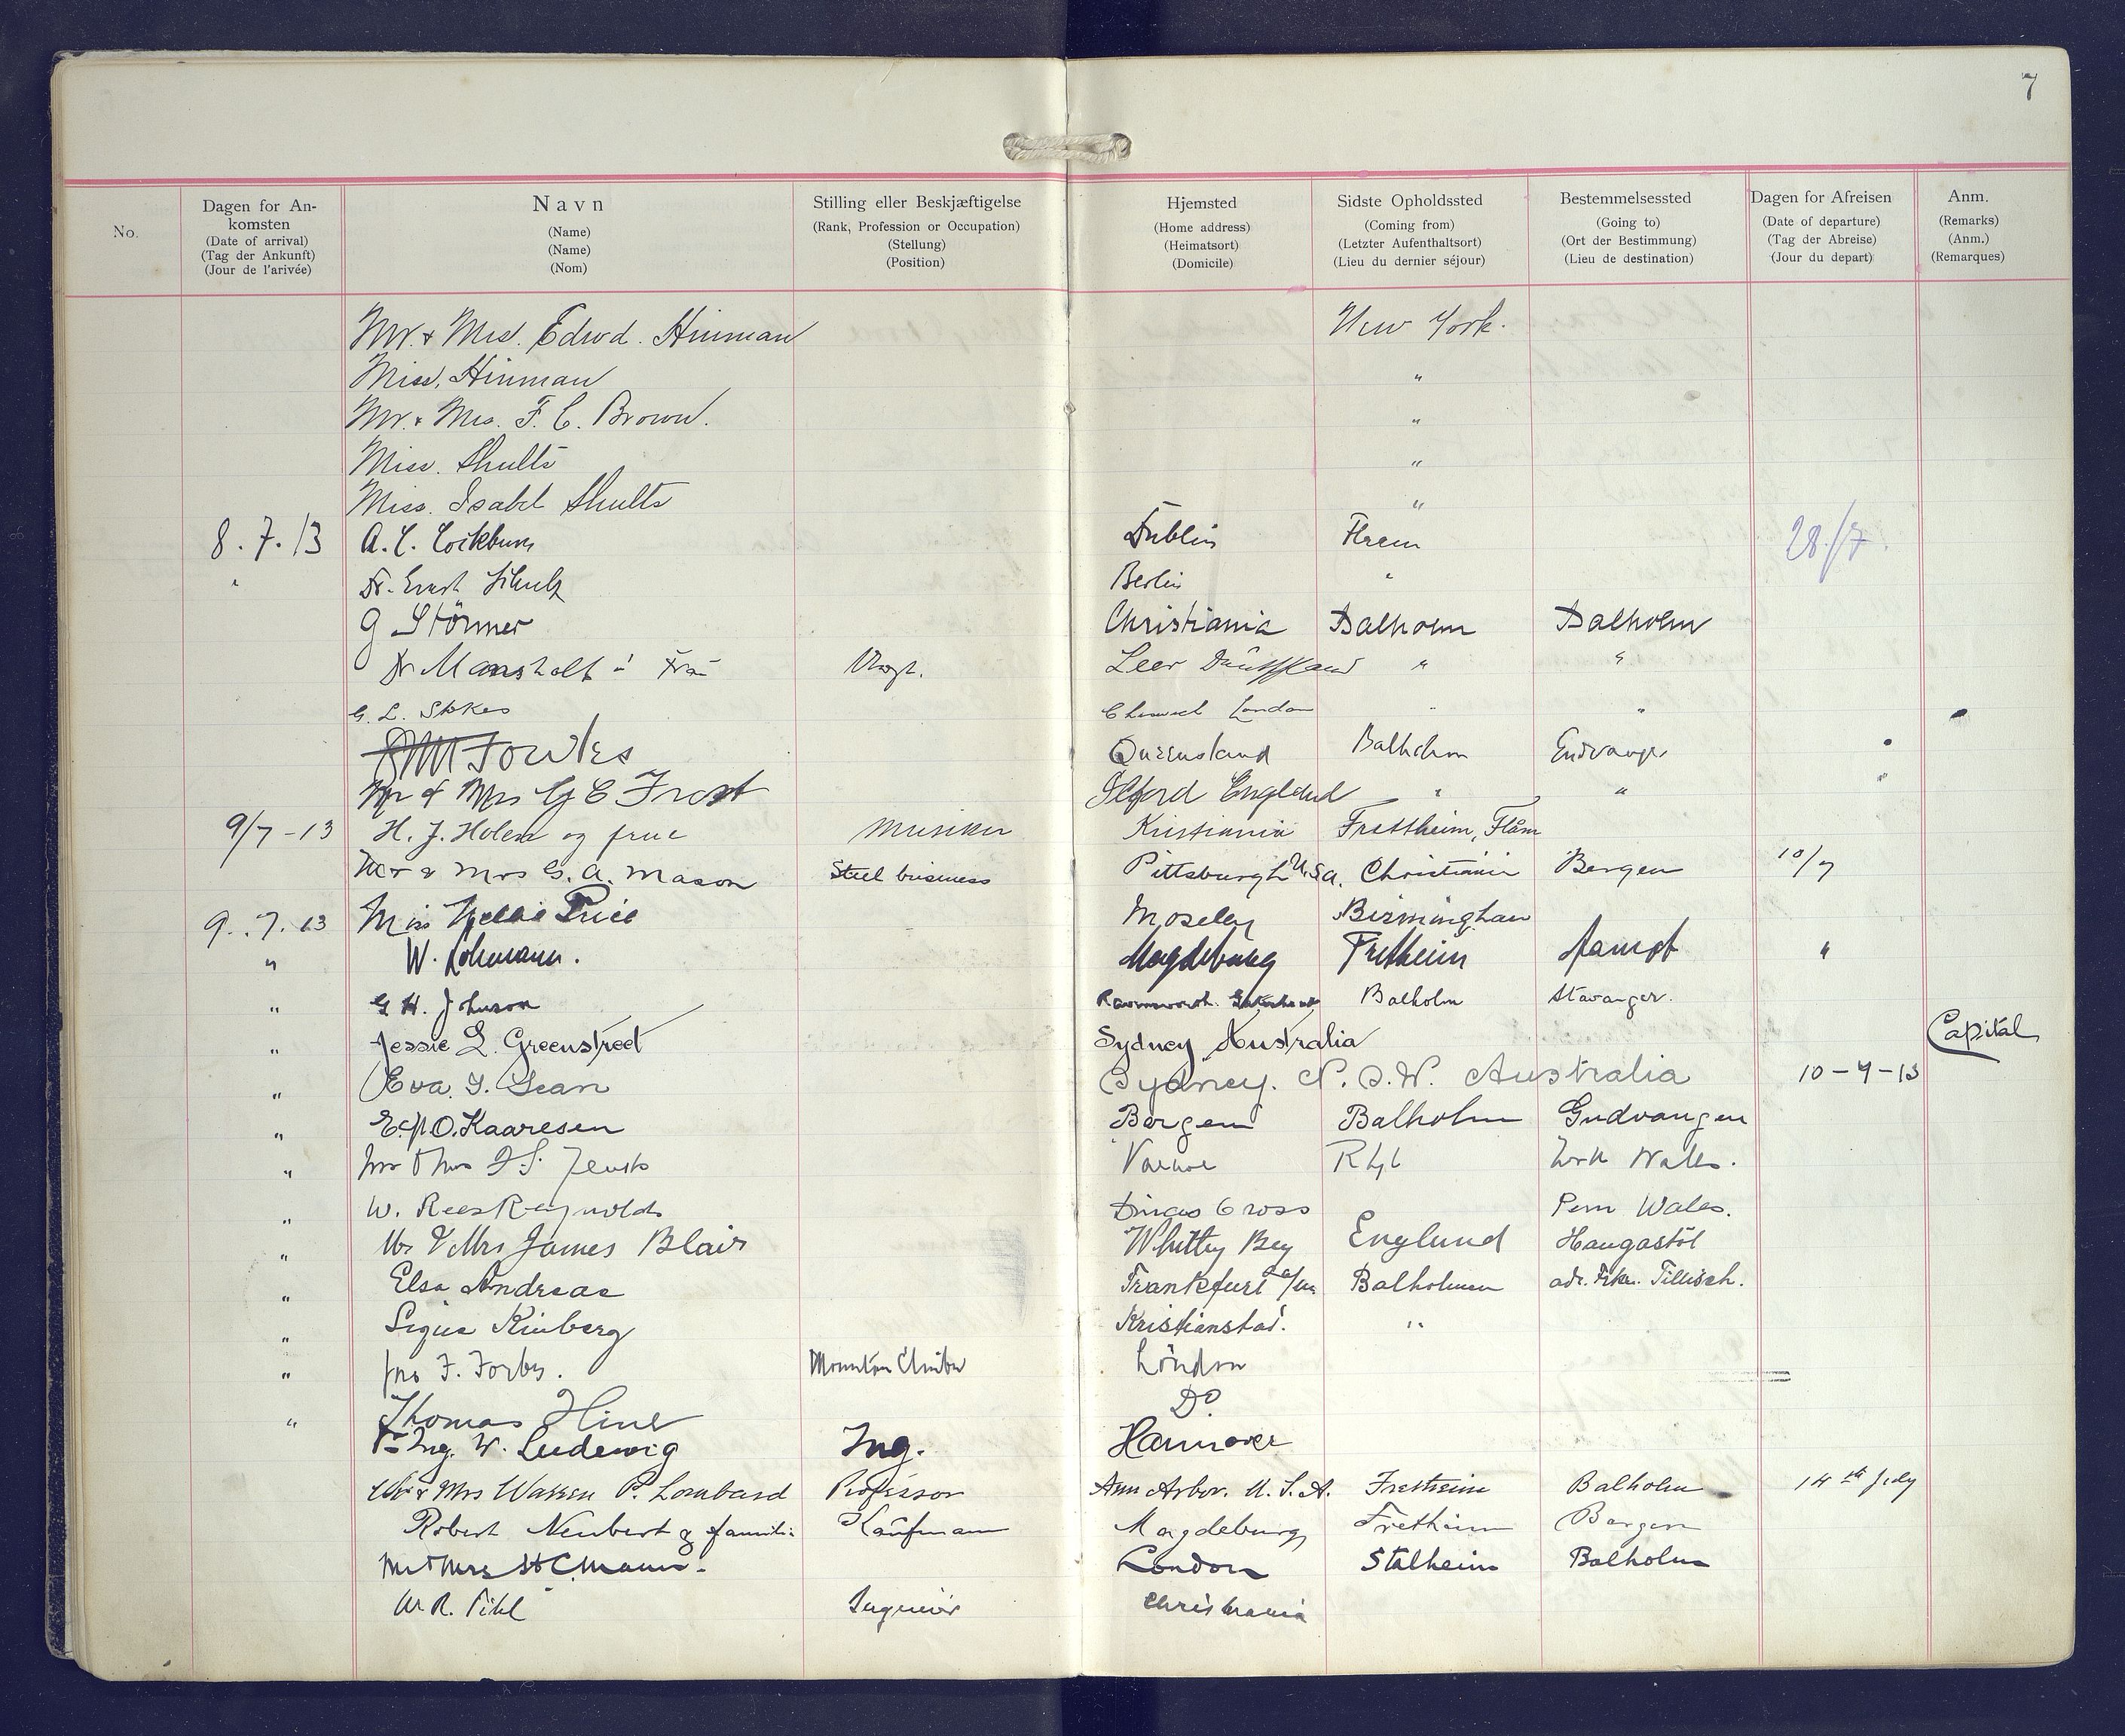 7
No. Dagen for An-komsten (Date of arrival) (Tag der Ankunft) (Jour de l'arivée) Navn (Name) (Name) (Nom) Stilling eller Beskjæftigelse (Rank, Profession or Occupation) (Stellung) (Position) Hjemsted (Home address) (Heimatsort) (Domicile) Sidste Opholdssted (Coming from) (Letzter Aufenthaltsort) (Lieu du dernier séjour) Bestemmelsessted (Going to) (Ort der Bestimmung) (Lieu de destination) Dagen for Afreisen (Date of departure) (Tag der Abreise) (Jour du depart) Anm. (Remarks) (Anm.) (Remarques)
Mr. & Mrs. Edwd. Hinman New York.
Miss. Hinman "
Mr. & Mrs. F. C. Brown. "
Miss. Shults "
Miss. Isabel Shults "
8.7.13 A. C. Cockburn Dublin 28/7
" Dr. Ernst Schulz Berlin "
G Störmer Christiania Balholm Balholm
Dr Mansholt Leer " "
G. L. Stokes London " "
Fowles Queensland Balholm
Mr & Mrs G C Frost Ilford England " " "
9/7-13 H. J. Holm og frue Musiker Kristiania Frettheim, Flåm
Mr & Mrs G. A. Mason Steel business Pittsburgh U.S.A. Christiania Bergen 10/7
9.7.13 Miss Nellie Price Moseley Birmingham
" W. Lohmann. Magdeburg Fretheim "
" G H. Johnson Balholm Stavanger.
" Jessie L. Greenstreet Sydney Australia Capital
" Eva. Sydney. N.S.W. Australia 10-7-13
" O. Kaaresen Bergen Balholm Gudvangen
" Wales.
" W. Rees Reynolds Dinas Cross Pem Wales.
" Mr & Mrs James Blair Whitley Bay England Haugastöl
" Elsa Andreae Frankfurt a/m Balholmen adr. Tillisch.
" Signe Kinberg Kristianstad. "
" Jno F. Forbes. Mountain Climber London
" Thomas Hine Do.
Ing. W. Ludewig Ing. Hannover
Mr & Mrs Warren P. Lombard Professor Ann Arbor. U.S.A. Fretheim Balholm 14th July
Robert Neubert & familie Kaufmann Magdeburg Fretheim Bergen
Mr & Mrs H C. Mann. London Stalheim Balholm
Pihl Ingeniör Christiania